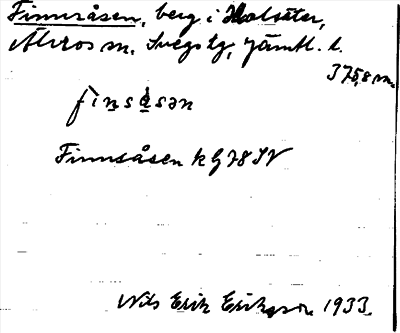 Finnsåsen, berg i Kolsäter,
Älvros sn. Svegs tg, Jämtl. l.
375,8 m.
fìnsåsən
Finnsåsen k G 78 SV
Nils Erik Erikson 1933.